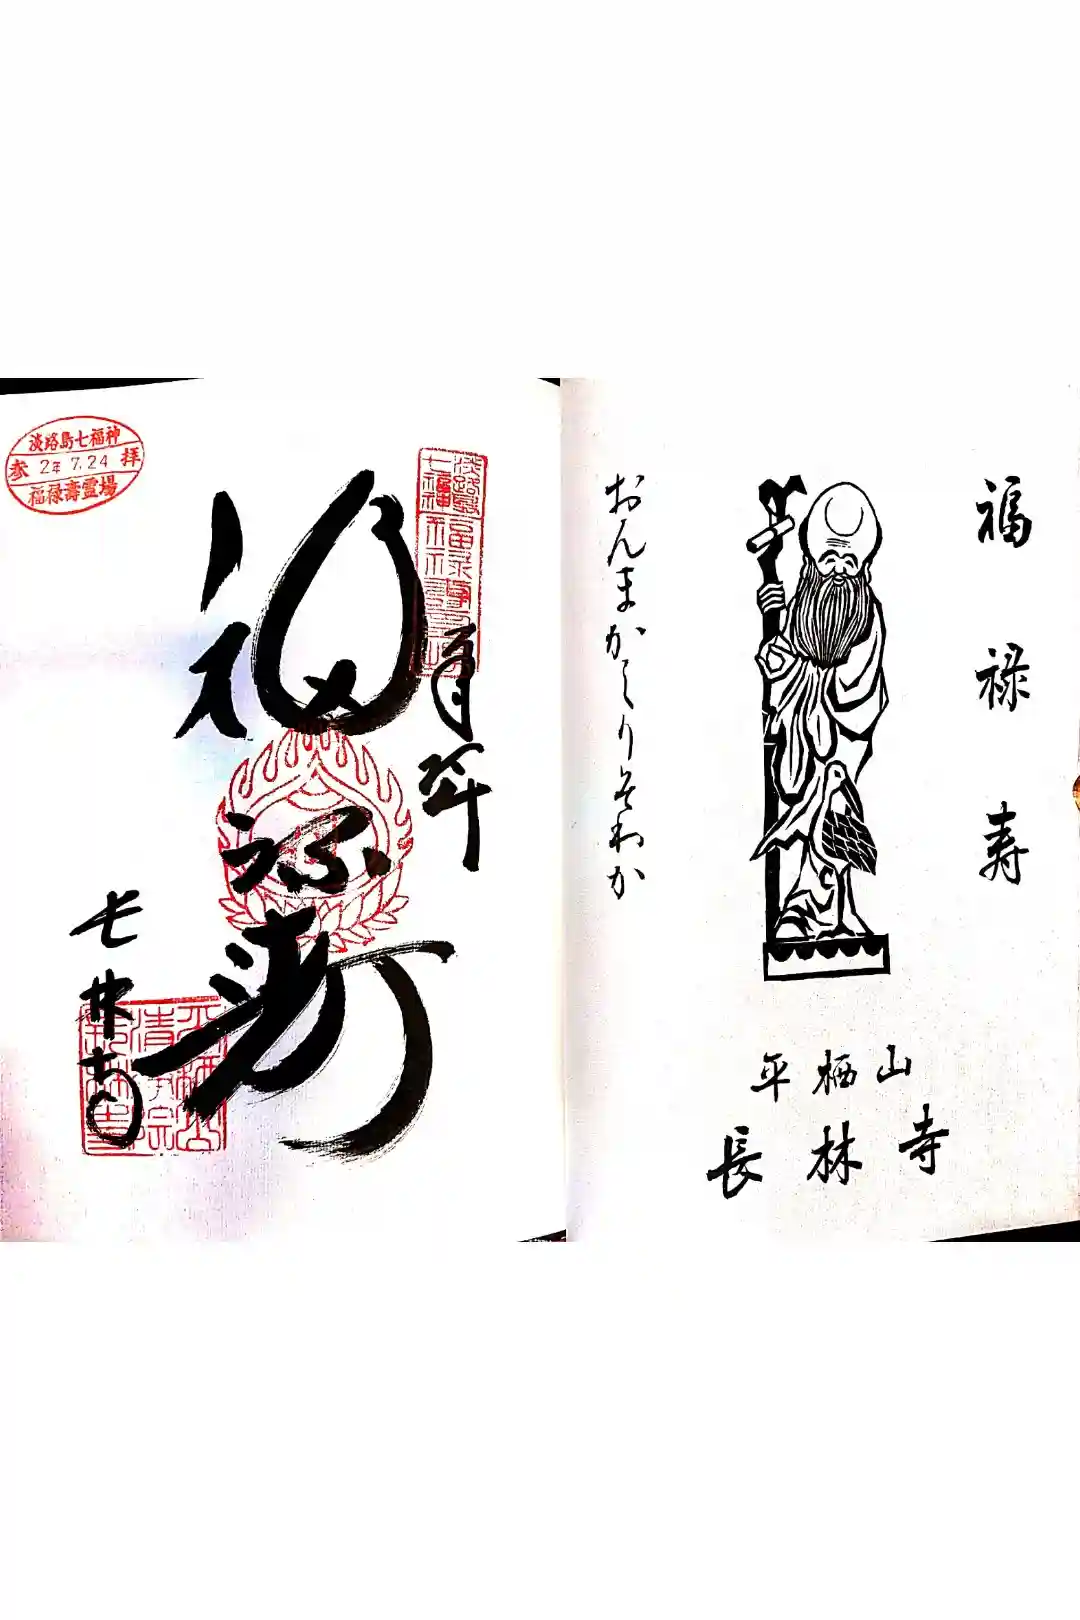 福禄寿
おんまかしりそわか
平栖山
長林寺
奉拝
福禄寿
長林寺
淡路島七福神
参 2年 7.24 拝
福禄壽霊場
淡路島
七福神